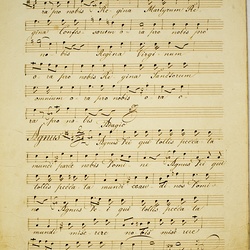 ra pro nobis Re gina Martyrum Re
gina Confes sarum o ra pro nobis pro
no bis Regina Virgi num
o ra pro nobis Re gina Sanctorum
omnium o ra pro nobis o ra
ra pro no bis Adagio
Agnus Agnus Dei qui tollis pecca ta
mundi parce nobis Domi ne Agnus Dei qui
tollis pecca ta mundi exau di nos Domi
ne Agnus De i qui tollis pecca ta
mundi mise rere no bis mise rere